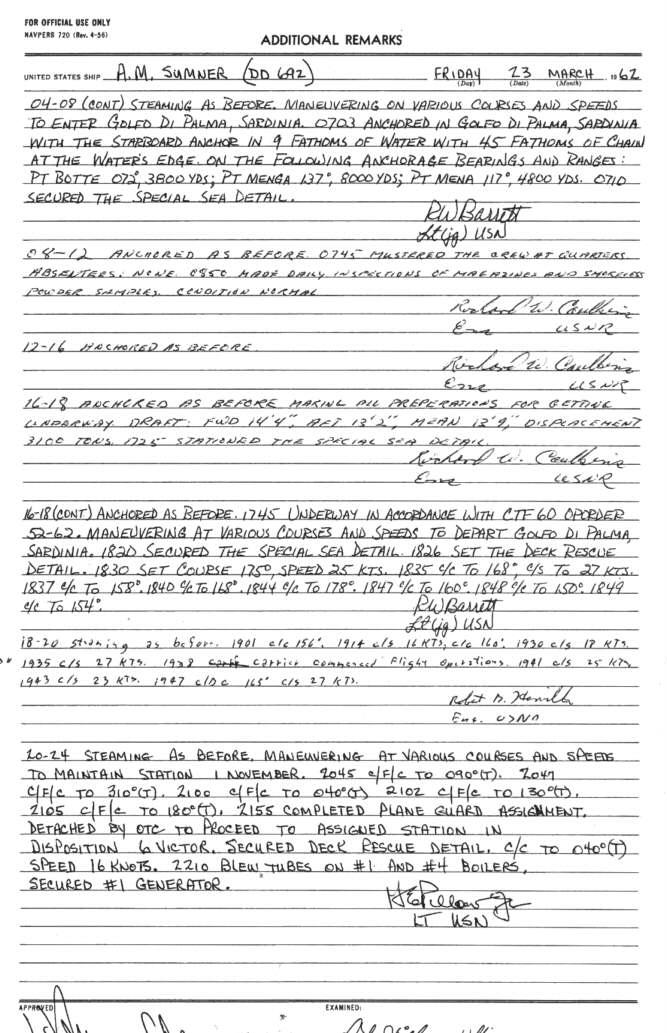 FOR OFFICIAL USE ONLY
NAVPERS 720 (Rev. 4-56)
ADDITIONAL REMARKS
UNITED STATES SHIP A.M. SUMNER (DD 692) FRIDAY 23 MARCH, 1962
(Day) (Date) (Month)
04-08 (CONT) STEAMING AS BEFORE. MANEUVERING ON VARIOUS COURSES AND SPEEDS
TO ENTER GOLFO DI PALMA, SARDINIA. 0703 ANCHORED IN GOLFO DI PALMA, SARDINIA
WITH THE STARBOARD ANCHOR IN 9 FATHOMS OF WATER WITH 45 FATHOMS OF CHAIN
AT THE WATER'S EDGE. ON THE FOLLOWING ANCHORAGE BEARINGS AND RANGES:
PT BOTTE 072°, 3800 YDS; PT MENGA 137°, 8000 YDS; PT MENA 117°, 4800 YDS. 0710
SECURED THE SPECIAL SEA DETAIL.
RW Barrett
Lt(jg) USN
08-12 ANCHORED AS BEFORE. 0745 MUSTERED THE CREW AT QUARTERS.
ABSENTEES: NONE. 0850 MADE DAILY INSPECTIONS OF MAGAZINES AND SMOKELESS
POWDER SAMPLES. CONDITION NORMAL
Richard W. Caulkins
Ens USNR
12-16 ANCHORED AS BEFORE.
Richard W. Caulkins
Ens USNR
16-18 ANCHORED AS BEFORE MAKING ALL PREPERATIONS FOR GETTING
UNDERWAY DRAFT: FWD 14'4", AFT 13'2", MEAN 13'9", DISPLACEMENT
3100 TONS. 1725 STATIONED THE SPECIAL SEA DETAIL.
Richard W. Caulkins
Ens USNR
16-18 (CONT) ANCHORED AS BEFORE. 1745 UNDERWAY IN ACCORDANCE WITH CTF 60 OPORDER
52-62. MANEUVERING AT VARIOUS COURSES AND SPEEDS TO DEPART GOLFO DI PALMA,
SARDINIA. 1820 SECURED THE SPECIAL SEA DETAIL. 1826 SET THE DECK RESCUE
DETAIL. 1830 SET COURSE 175°, SPEED 25 KTS. 1835 C/C TO 168°, C/S TO 27 KTS.
1837 C/C TO 158°. 1840 C/C TO 168°. 1844 C/C TO 178°. 1847 C/C TO 160°. 1848 C/C TO 150°. 1849
C/C TO 154°.
RW Barrett
Lt(jg) USN
18-20 Steaming as before. 1901 c/c 156°. 1914 c/s 16 KTS, c/c 160°. 1930 c/s 18 KTS.
1935 c/s 27 KTS. 1938 carrier commenced flight operations. 1941 c/s 25 KTS
1943 c/s 23 KTS. 1947 165° c/s 27 KTS.
Ens.
20-24 STEAMING AS BEFORE, MANEUVERING AT VARIOUS COURSES AND SPEEDS
TO MAINTAIN STATION 1 NOVEMBER. 2045 C/F/C TO 090°(T). 2047
C/F/C TO 310°(T). 2100 C/F/C TO 040°(T) 2102 C/F/C TO 130°(T).
2105 C/F/C TO 180°(T). 2155 COMPLETED PLANE GUARD ASSIGNMENT.
DETACHED BY OTC TO PROCEED TO ASSIGNED STATION IN
DISPOSITION 6 VICTOR. SECURED DECK RESCUE DETAIL. C/C TO 040°(T)
SPEED 16 KNOTS. 2210 BLEW TUBES ON #1 AND #4 BOILERS,
SECURED #1 GENERATOR.
LT USN
APPROVED EXAMINED: